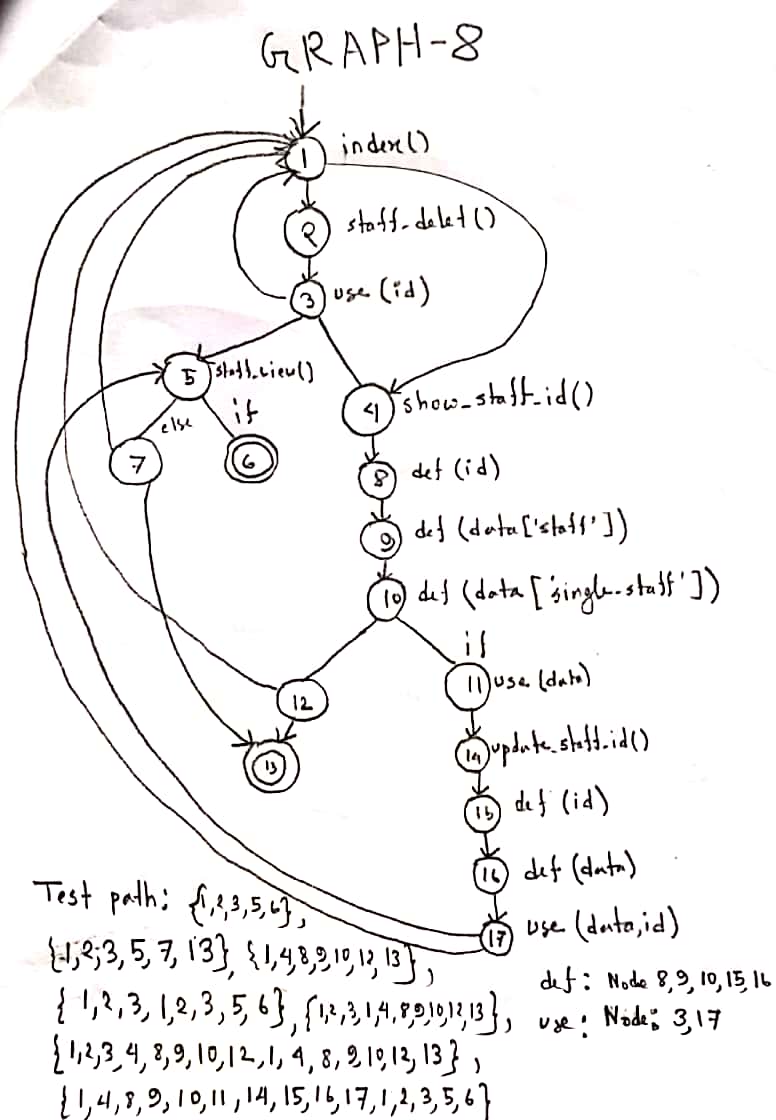 GRAPH-8
1 index()
2 staff_delet()
3 use (id)
5 staff_view()
4 show_staff_id()
else if
7 6
8 def (id)
9 def (data['staff'])
10 def (data['single-staff'])
if
11 use (data)
12
14 update_staff_id()
13
15 def (id)
16 def (data)
17 use (data,id)
Test path: {1,2,3,5,6},
{1,2,3,5,7,13}, {1,4,8,9,10,12,13},
{1,2,3,1,2,3,5,6}, {1,2,3,1,4,8,9,10,12,13},
{1,2,3,4,8,9,10,12,1,4,8,9,10,12,13},
{1,4,8,9,10,11,14,15,16,17,1,2,3,5,6}
def: Node 8,9,10,15,16
use: Node: 3,17